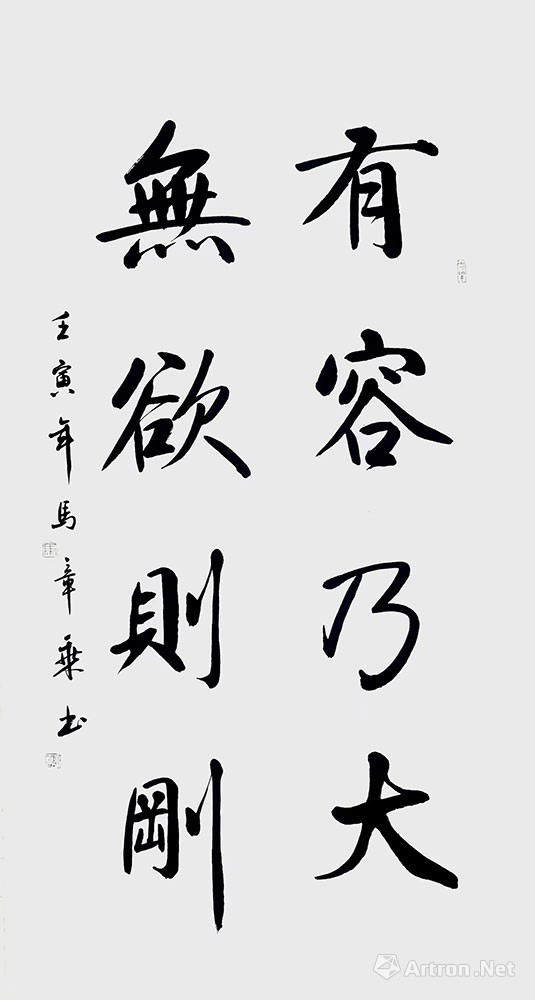 有容乃大
無欲則剛
壬寅年馬章乘书
Artron.Net